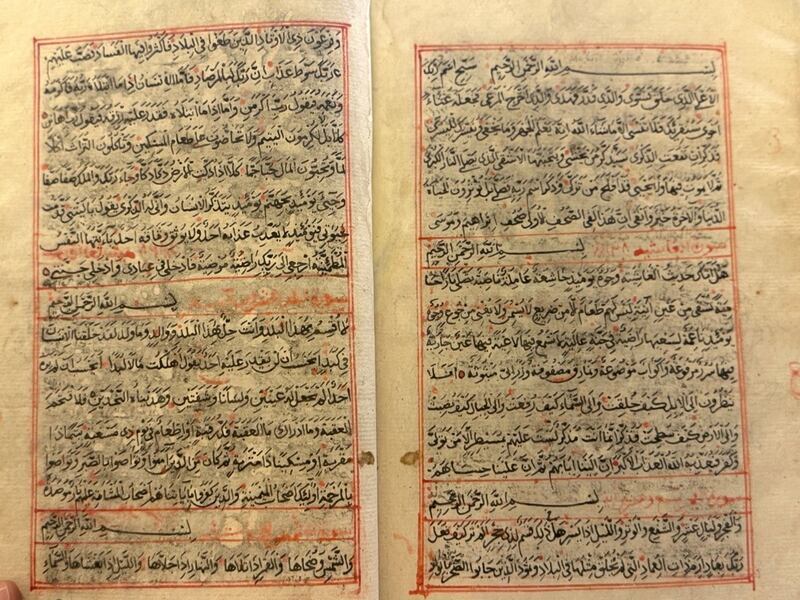 بسم الله الرحمن الرحيم سبح اسم ربك
الاعلى الذى خلق فسوى والذى قدر فهدى والذى اخرج المرعى فجعله غثاء
احوى سنقرئك فلا تنسى الا ما شاء الله انه يعلم الجهر وما يخفى ونيسرك لليسرى
فذكر ان نفعت الذكرى سيذكر من يخشى ويتجنبها الاشقى الذى يصلى النار الكبرى
ثم لا يموت فيها ولا يحيى قد افلح من تزكى وذكر اسم ربه فصلى بل تؤثرون الحيوة
الدنيا والاخرة خير وابقى ان هذا لفى الصحف الاولى صحف ابراهيم وموسى
سورة الغاشية بسم الله الرحمن الرحيم
هل اتيك حديث الغاشية وجوه يومئذ خاشعة عاملة ناصبة تصلى نارا حا
مية تسقى من عين انية ليس لهم طعام الا من ضريع لا يسمن ولا يغنى من جوع وجوه
يومئذ ناعمة لسعيها راضية فى جنة عالية لا تسمع فيها لاغية فيها عين جارية
فيها سرر مرفوعة واكواب موضوعة ونمارق مصفوفة وزرابى مبثوثة افلا
ينظرون الى الابل كيف خلقت والى السماء كيف رفعت والى الجبال كيف نصبت
والى الارض كيف سطحت فذكر انما انت مذكر لست عليهم بمسيطر الا من تولى
وكفر فيعذبه الله العذاب الاكبر ان الينا ايابهم ثم ان علينا حسابهم
بسم الله الرحمن الرحيم
والفجر وليال عشر والشفع والوتر والليل اذا يسر هل فى ذلك قسم لذى حجر الم تر كيف فعل
ربك بعاد ارم ذات العماد التى لم يخلق مثلها فى البلاد وثمود الذين جابوا الصخر بالواد
وفرعون ذى الاوتاد الذين طغوا فى البلاد فاكثروا فيها الفساد فصب عليهم
ربك سوط عذاب ان ربك لبالمرصاد فاما الانسان اذا ما ابتلاه ربه فاكرمه
ونعمه فيقول ربى اكرمن واما اذا ما ابتلاه فقدر عليه رزقه فيقول ربى اهانن
كلا بل لا تكرمون اليتيم ولا تحاضون على طعام المسكين وتأكلون التراث اكلا
لما وتحبون المال حبا جما كلا اذا دكت الارض دكا دكا وجاء ربك والملك صفا صفا
وجىء يومئذ بجهنم يومئذ يتذكر الانسان وانى له الذكرى يقول يا ليتنى قدمت
لحيوتى فيومئذ لا يعذب عذابه احد ولا يوثق وثاقه احد يا ايتها النفس
المطمئنة ارجعى الى ربك راضية مرضية فادخلى فى عبادى وادخلى جنتى
بسم الله الرحمن الرحيم
لا اقسم بهذا البلد وانت حل بهذا البلد ووالد وما ولد لقد خلقنا الانسان
فى كبد ايحسب ان لن يقدر عليه احد يقول اهلكت مالا لبدا ايحسب ان لم يره
احد الم نجعل له عينين ولسانا وشفتين وهديناه النجدين فلا اقتحم
العقبة وما ادراك ما العقبة فك رقبة او اطعام فى يوم ذى مسغبة يتيما ذا
مقربة او مسكينا ذا متربة ثم كان من الذين آمنوا وتواصوا بالصبر وتواصوا
بالمرحمة اولئك اصحاب الميمنة والذين كفروا بآياتنا هم اصحاب المشأمة عليهم نار مؤصدة
بسم الله الرحمن الرحيم
والشمس وضحاها والقمر اذا تلاها والنهار اذا جلاها والليل اذا يغشاها والسماء